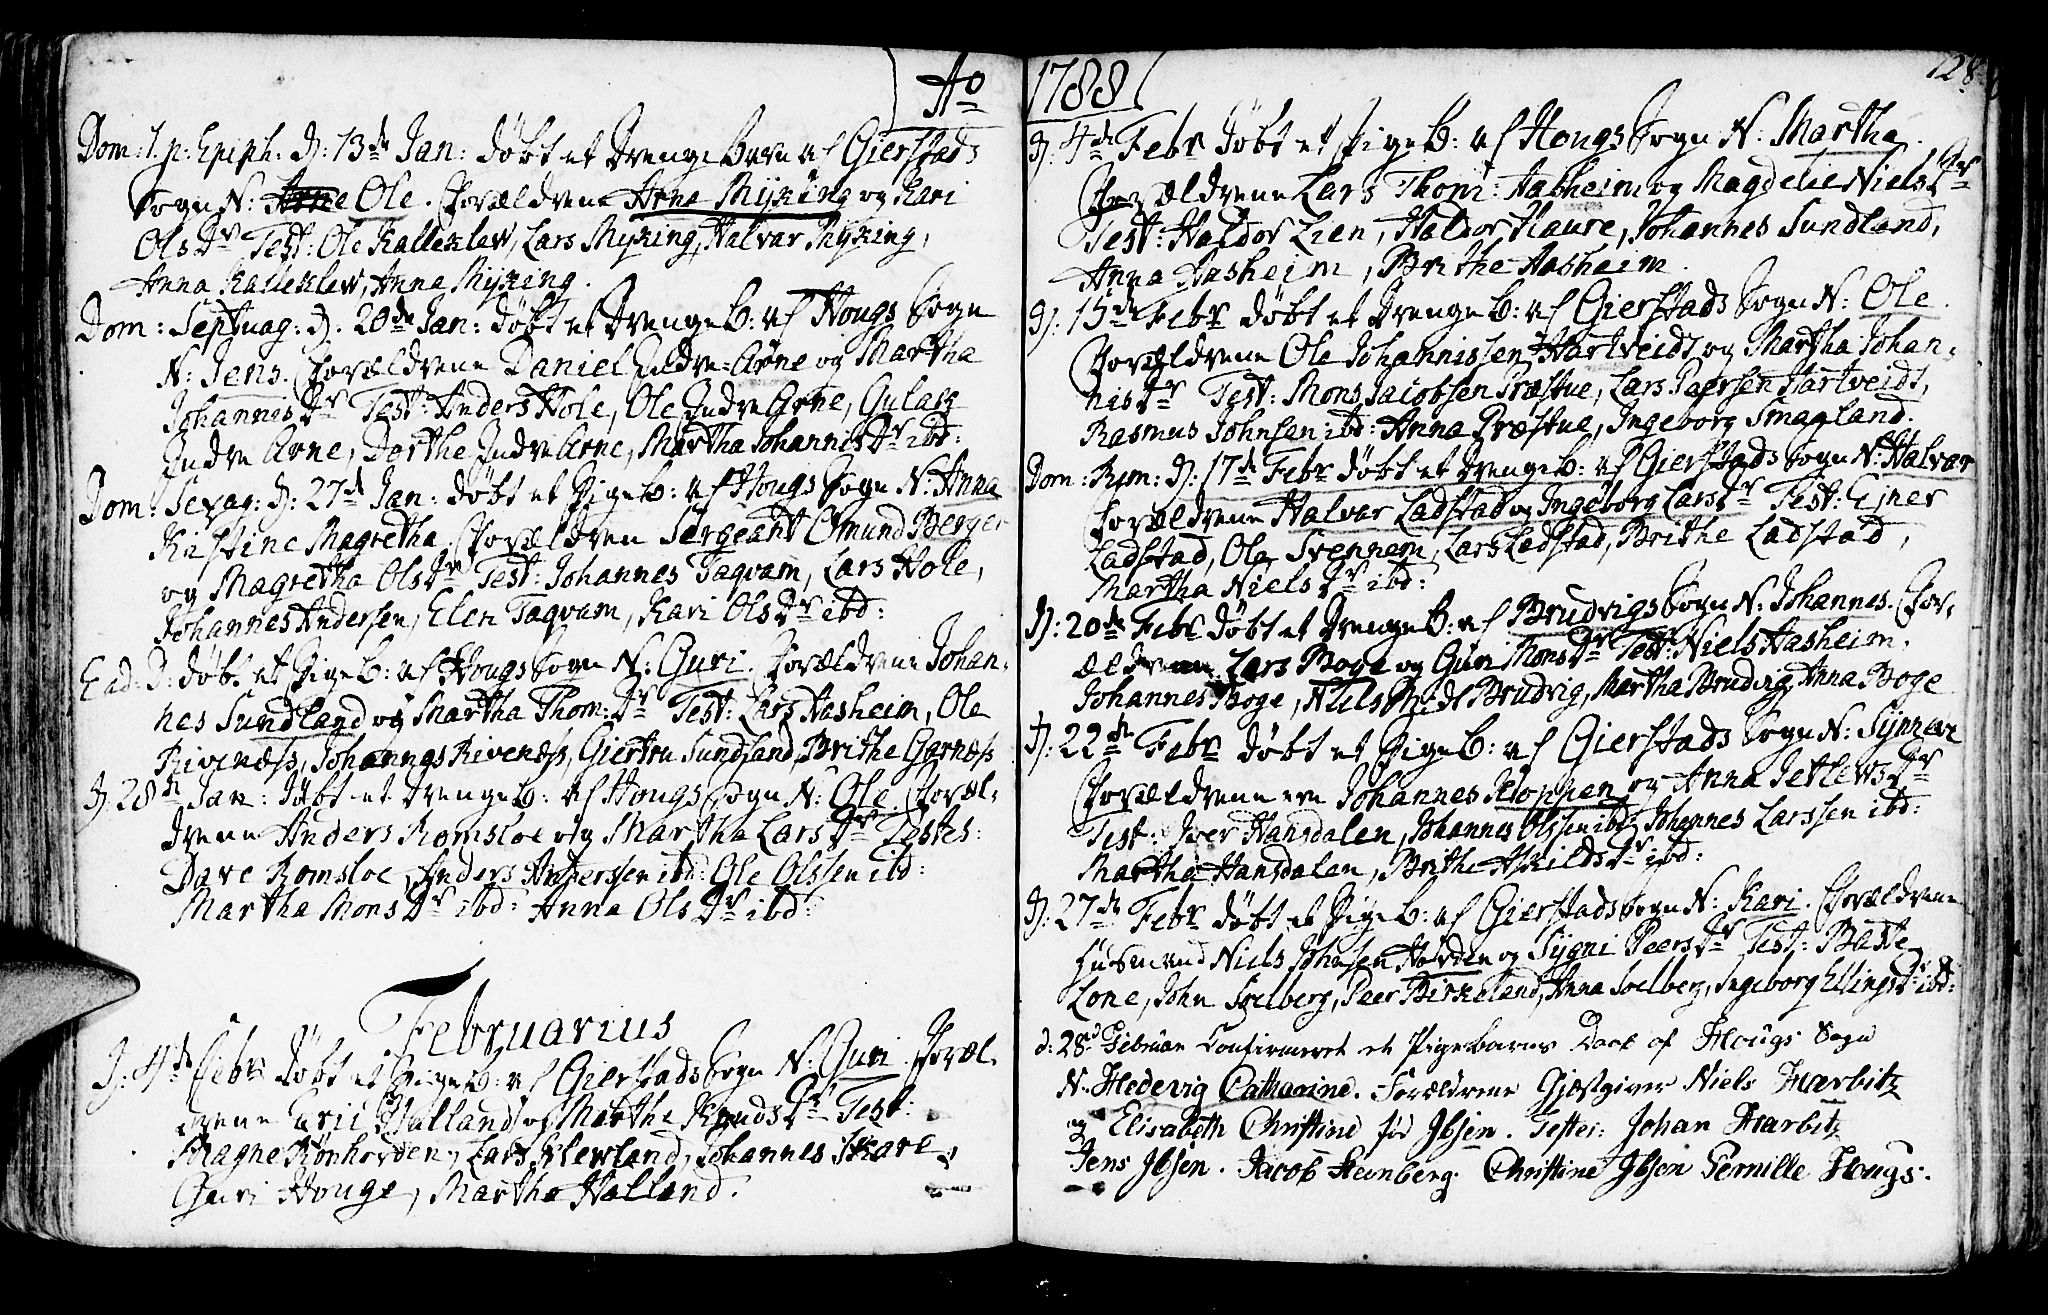 Ao
Dom: 1 p: Epiph: D: 13de Jan: døbt et Drenge Barn af Gierstads
Sogn N: Ole. Forældrene Arne Myking og Kari
Ols Dr Test: Ole Kalleklew, Lars Myking, Halvar Myking,
Anna Kalleklew, Anna Myking.
Dom: Septuag: D: 20de Jan: døbt et Drenge B: af Hougs Sogn
N: Jens. Forældrene Daniel Indre-Arne og Martha
Johannis Dr Test: Anders Hole, Ole Indre Arne, Gulach
Indre Arne, Dorthe Indre Arne, Martha Johannis Dr ibd:
Dom: Sexag: D: 27de Jan: døbt et Pige B: af Hougs Sogn N: Anna
Kirstine Magretha. Forældren Sergeant Omund Berger
og Magretha Ols Dr Test: Johannes Taqvam, Lars Hole,
Johannes Andersen, Elen Taqvam, Kari Ols Dr ibd:
Ead: D: døbt et Pige B: af Hougs Sogn N: Guri. Forældrene Johan-
nes Sundland og Martha Thom: Dr Test: Lars Aasheim, Ole
Rivenæss, Johannes Rivenæss, Giertru Sundland, Brithe Garnæss
D: 28de Jan: døbt et Drenge B: af Hougs Sogn N: Ole. Foræl-
drene Anders Romsloe og Martha Lars Dr Testes:
Dave Romsloe, Anders Anderssen ibd: Ole Olssen ibd:
Martha Mons Dr ibd: Anna Ols Dr ibd:
Februarius
D: 4de Febr døbt et Pige B: af Gierstads Sogn N: Guri. Foræl-
drene Eric Halland og Marthe Knuds Dr Test:
Magne Rønhovden, Lars Klewland, Johannes Skare,
Guri Houge, Martha Halland.
1788
128
D: 4de Febr døbt et Pige B: af Hougs Sogn N: Martha.
Forældrene Lars Thom: Aasheim og Magdelie Niels Dr
Test: Haldor Lien, Haldor Haure, Johannes Sundland,
Anna Aasheim, Brithe Aasheim.
D: 15de Febr døbt et Drenge B: af Gierstads Sogn N: Ole.
Forældrene Ole Johannissen Hartveidt og Martha Johan-
nis Dr Test: Mons Jacobsen Præstue, Lars Paersen Hartveidt,
Rasmus Johnsen ibd: Anna Præstue, Ingeborg Smagland.
Dom: Rem: D: 17de Febr døbt et Drenge B: af Gierstads Sogn N: Halvar
Forældrene Halvar Ladstad og Ingeborg Lars Dr Test: Ejner
Ladstad, Ole Svennem, Lars Ladstad, Brithe Ladstad,
Martha Niels Dr ibd:
D: 20de Febr døbt et Drenge B: af Brudvigs Sogn N: Johannes. For-
ældrene Lars Boge og Guri Mons Dr Test: Niels Aasheim,
Johannes Boge, Niels Brudvig, Martha Brudvig, Anna Boge
D: 22de Febr døbt et Pige B: af Gierstads Sogn N: Synneve
Forældrene ere Johannes Kloppen og Anna Detlews Dr
Test: Iver Hansdalen, Johannes Olssen ibd: Johannes Larssen ibd:
Martha Hansdalen, Brithe Askilds Dr ibd:
D: 27de Febr døbt et Pige B: af Gierstads Sogn N: Kari. Forældrene
Husmand Niels Johnsen Hovden og Sygni Peers Dr Test: Baste
Lone, John Soelberg, Peer Birkeland, Anna Soelberg, Ingeborg Ellings Dr ibd:
d: 28d Februar Confirmeret et Pigebarns Daab af Hougs Sogn
N. Hedevig Catharine. Forældrene Gjæstgiver Niels Harbitz
og Elisabeth Christine fød Jbsen. Testes: Johan Harbitz
Jens Jbsen. Jacob Steenberg. Christine Jbsen Pernille Hougs.